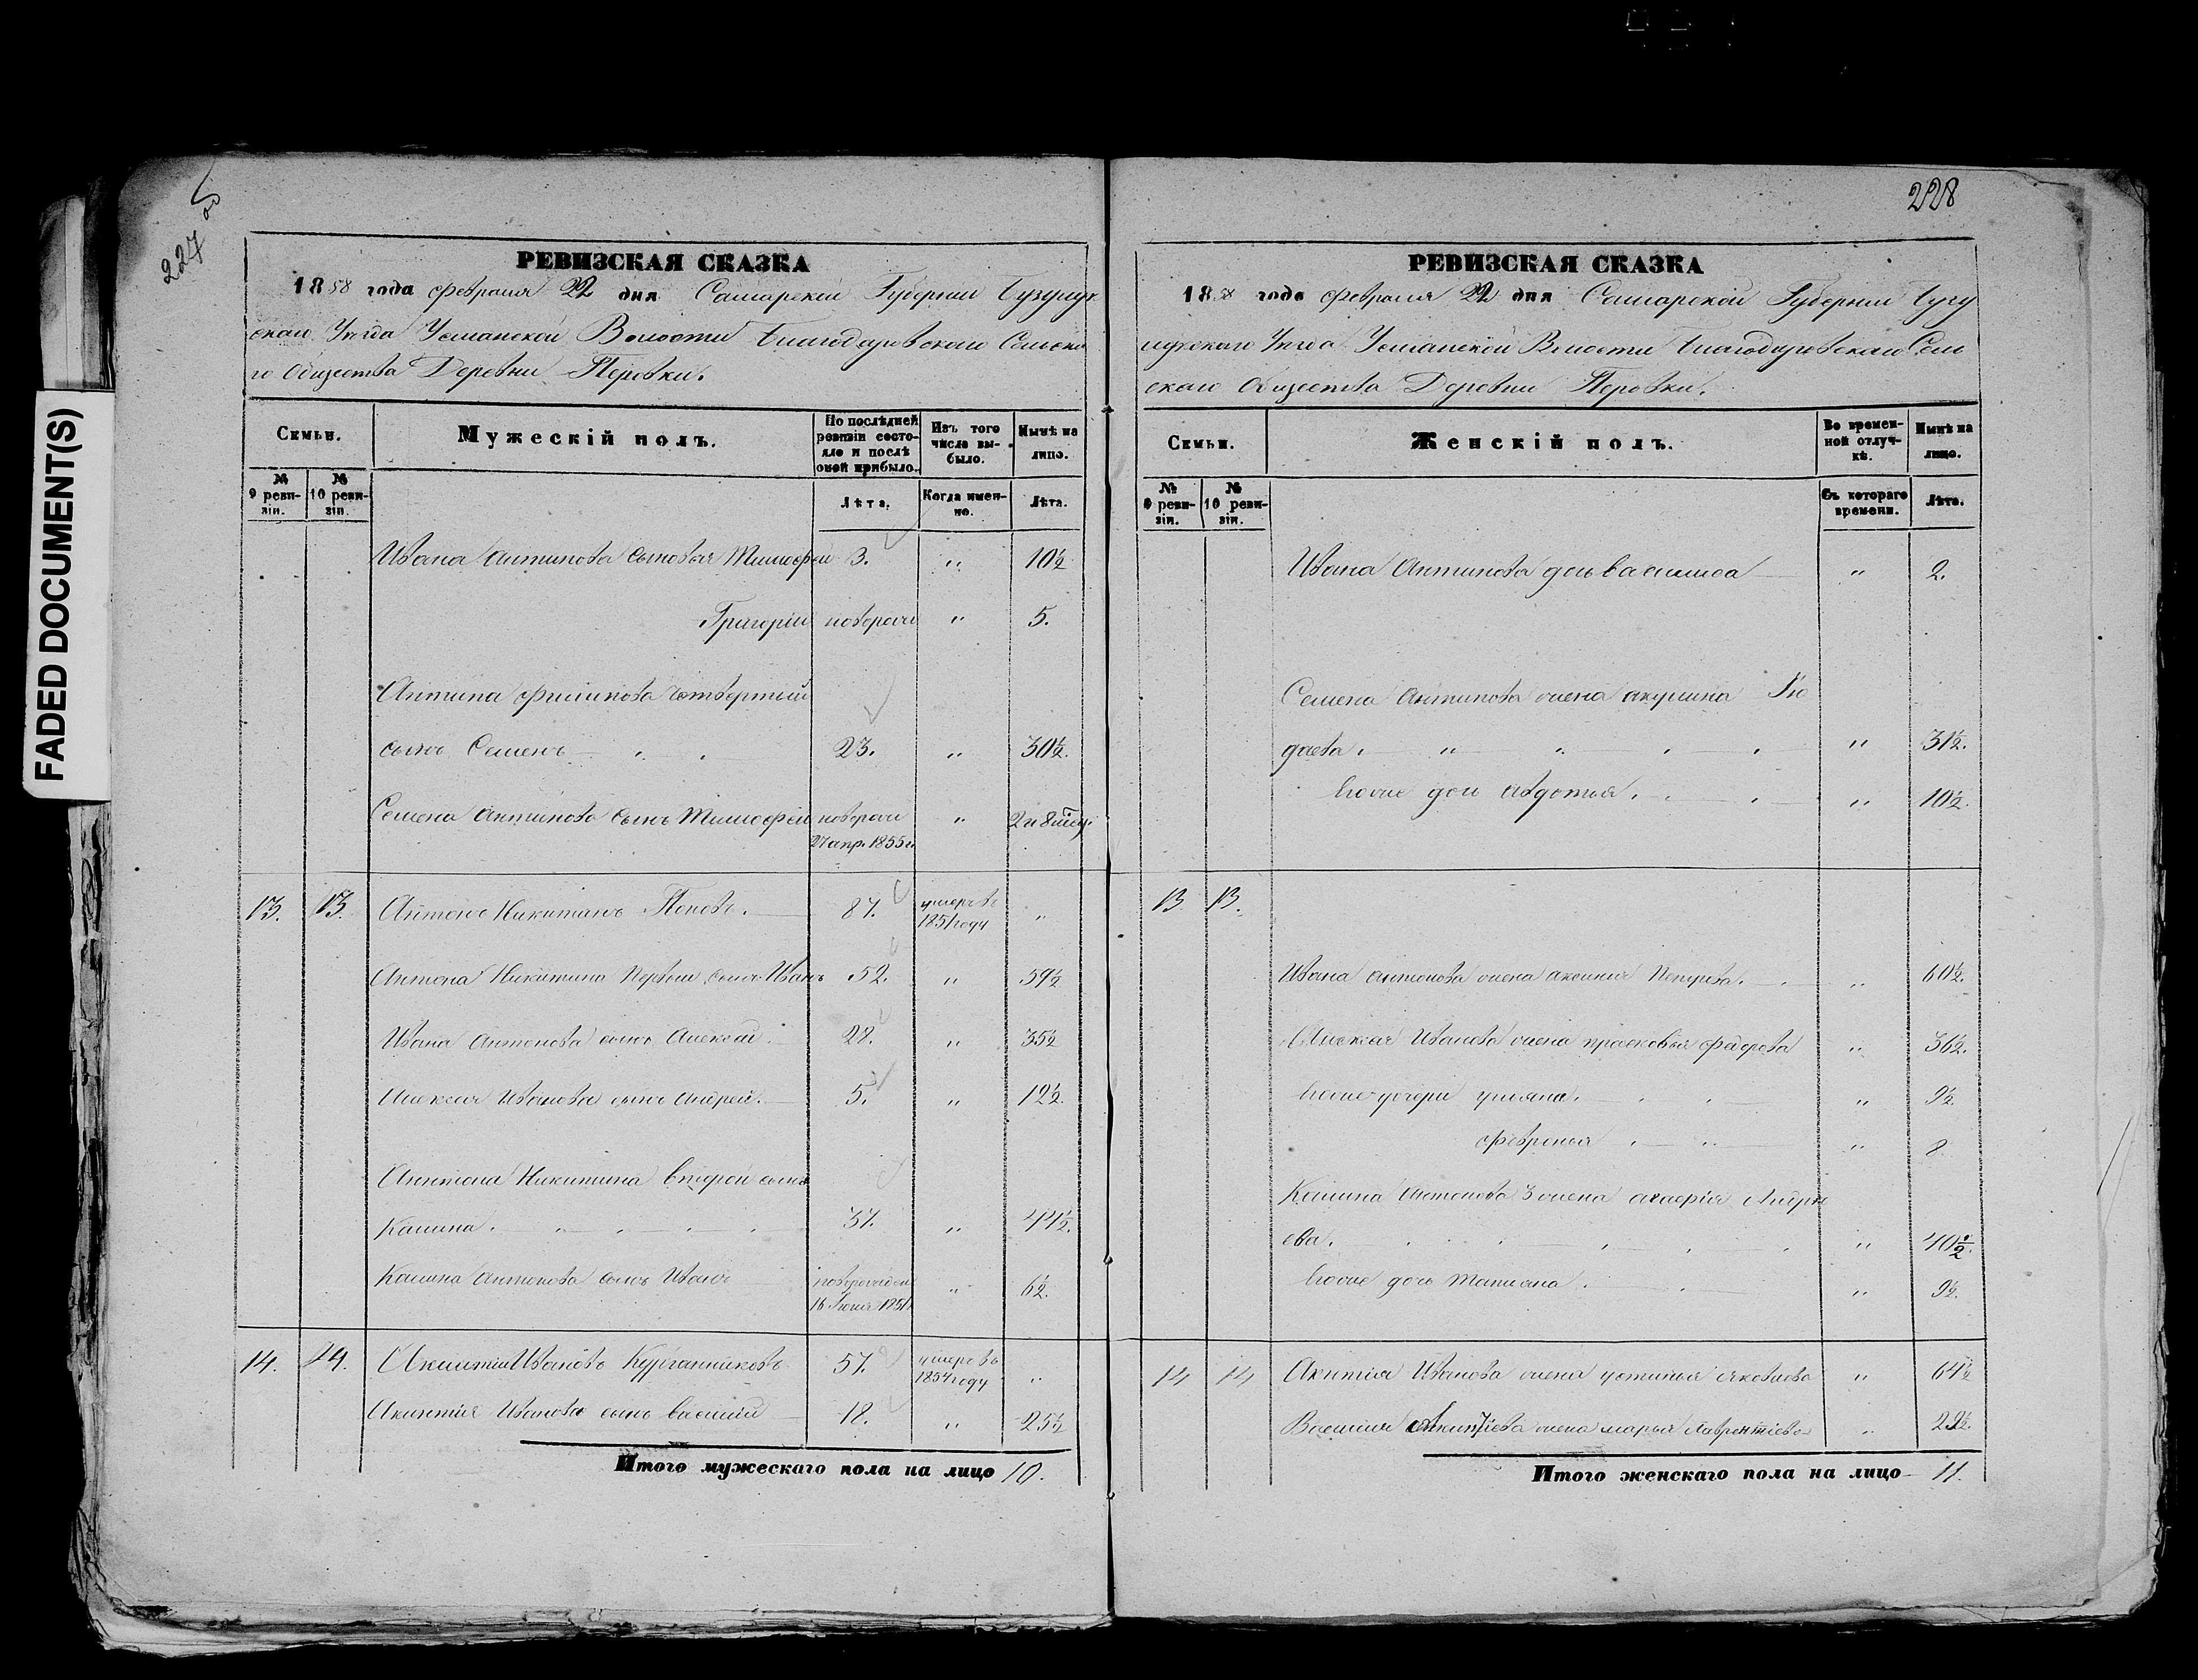 FADED DOCUMENT(S)
227 об
РЕВИЗСКАЯ СКАЗКА
1858 года февраля 22 дня Самарской Губернии Бузулук
скаго Уѣзда Усманской Волости Благодаровскаго Сельска
го Общества Деревни Перовки.
Семьи.
№ 9 ревизіи.
№ 10 ревизіи.
Мужескій полъ.
По послѣдней ревизіи состояло и послѣ оной прибыло.
Лѣта.
Изъ того числа выбыло.
Когда именно.
Нынѣ на лицо.
Лѣта.
Ивана Антипова сыновья Тимофей 3. " 10½
Григорій новорожд " 5.
Антипа Филипова четвертый
сынъ Семенъ 23. " 30½.
Семена Антипова сынъ Тимофей новорожд " 2 и 8 мѣс.
27 апр. 1855 г.
13. 13. Антонъ Никитинъ Поповъ. 87. умеръ въ "
1851 году
Антона Никитина Первый сынъ Иванъ 52. " 59½
Ивана Антонова сынъ Алексей 28. " 35½
Алексея Иванова сынъ Андрей. 5. " 12½.
Антона Никитина второй сынъ
Калина. 37. " 44½.
Калина Антонова сынъ Иванъ новорожден " 6½.
16 Июня 1851
14. 14. Акинтій Ивановъ Курганниковъ 57. умеръ въ "
1854 году
Акинтія Иванова сынъ Василій 18. " 25½
Итого мужескаго пола на лицо 10.
228
РЕВИЗСКАЯ СКАЗКА
1858 года февраля 22 дня Самарской Губернии Бузу
лукскаго Уѣзда Усманской Волости Благодаровскаго Сель
скаго Общества Деревни Перовки.
Семьи.
№ 9 ревизіи.
№ 10 ревизіи.
Женскій полъ.
Во временной отлучкѣ.
Съ котораго времени.
Нынѣ на лицо.
Лѣта.
Ивана Антипова дочь Василиса " 2.
Семена Антипова жена Акулина
" 31½.
Ево же дочь Авдотья. " 10½.
13 13.
Ивана Антонова жена Аксинья Петрова. " 60½.
Алексея Иванова жена Прасковья Федорова " 36½.
Ево же дочери Ульяна. " 9½.
Февронья " 8
Калина Антонова 3 жена Андре
ева. " 40½.
Ево же дочь Татьяна. " 9½.
14 14 Акинтія Иванова жена Устинья Яковлева " 64½
Василия Акинтіева жена Марья Лаврентіева " 22½.
Итого женскаго пола на лицо 11.